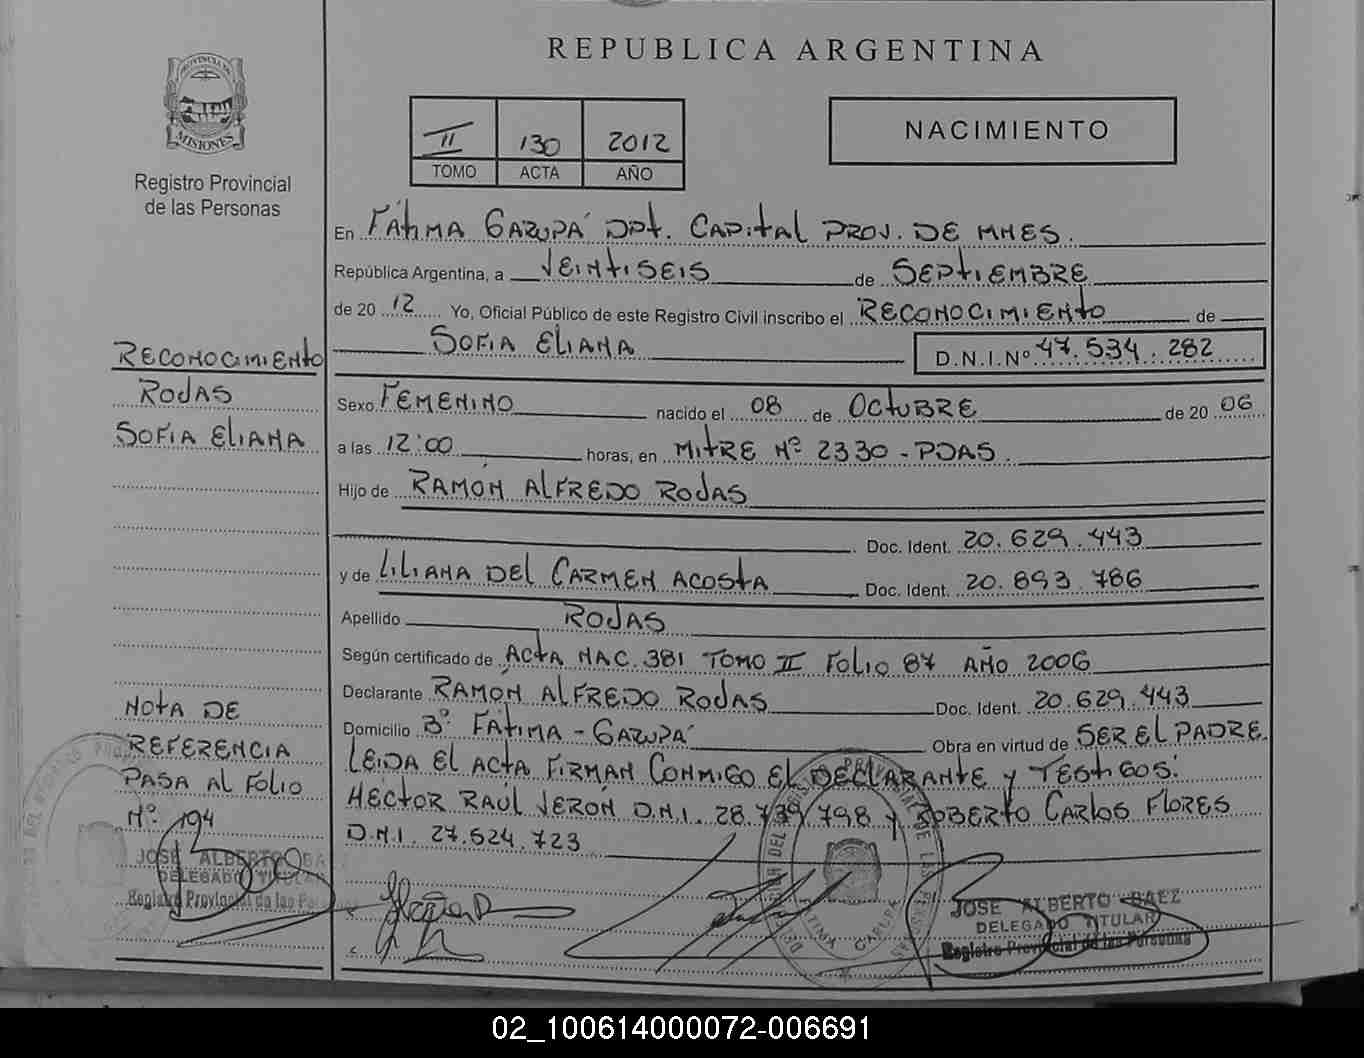 REPUBLICA ARGENTINA
PROVINCIA DE
MISIONES
Registro Provincial
de las Personas
II 130 2012
TOMO ACTA AÑO
NACIMIENTO
En FÁTIMA GARUPÁ DPT. CAPITAL PROV. DE MNES.
República Argentina, a VEINTISEIS de SEPTIEMBRE
de 20 12 Yo, Oficial Público de este Registro Civil inscribo el RECONOCIMIENTO de
SOFIA ELIANA D.N.I.Nº 47.534.282
Sexo FEMENINO nacido el 08 de OCTUBRE de 20 06
a las 12:00 horas, en MITRE Nº 2330 - PDAS.
Hijo de RAMÓN ALFREDO RODAS
Doc. Ident. 20.629.443
y de LILIANA DEL CARMEN ACOSTA Doc. Ident. 20.893.786
Apellido RODAS
Según certificado de ACTA NAC. 381 TOMO II FOLIO 87 AÑO 2006
Declarante RAMÓN ALFREDO RODAS Doc. Ident. 20.629.443
Domicilio Bº FÁTIMA - GARUPÁ Obra en virtud de SER EL PADRE.
LEIDA EL ACTA FIRMAN CONMIGO EL DECLARANTE Y TESTIGOS:
HÉCTOR RAÚL VERÓN D.N.I. 28.739.798 Y ROBERTO CARLOS FLORES
D.N.I. 27.524.723
JOSE ALBERTO BAEZ
DELEGADO TITULAR
Registro Provincial de las Personas
RECONOCIMIENTO
RODAS
SOFIA ELIANA
NOTA DE
REFERENCIA
PASA AL FOLIO
Nº 194
JOSE ALBERTO BA
DELEGADO TITULAR
Registro Provincial de las Pe
02_100614000072-006691